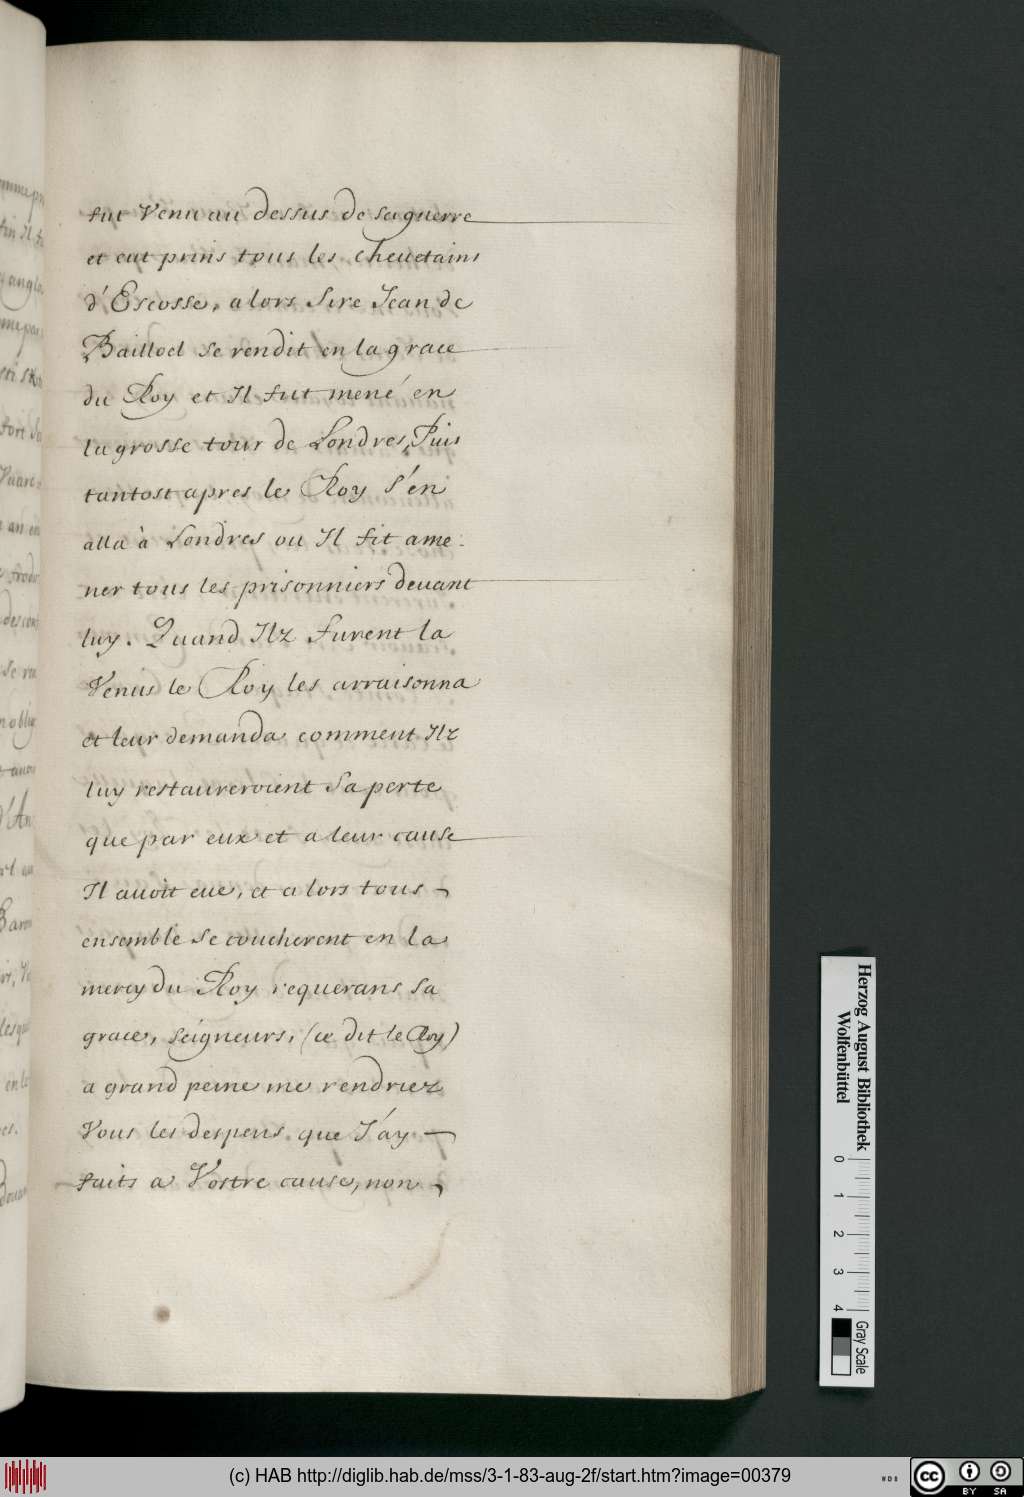 fut Venu au dessus de sa guerre
et eut prins tous les cheuetains
d'Escosse, alors Sire Jean de
Bailloel se rendit en la grace
du Roy et Il fut mené en
la grosse tour de Londres, Puis
tantost apres le Roy S'en
alla à Londres ou Il fit ame-
ner tous les prisonniers deuant
luy. Quand Ilz furent la
Venus le Roy les arraisonna
et leur demanda comment Ilz
luy restaureroient sa perte
que par eux et a leur cause
Il auoit eue, et alors tous
ensemble se coucherent en la
mercy du Roy requerans sa
grace, seigneurs, (ce dit le Roy)
a grand peine me rendriez
Vous les despens que J'ay
faits a Vostre cause, non
Herzog August Bibliothek
Wolfenbüttel
0 1 2 3 4
Gray Scale
(c) HAB http://diglib.hab.de/mss/3-1-83-aug-2f/start.htm?image=00379
cc BY SA